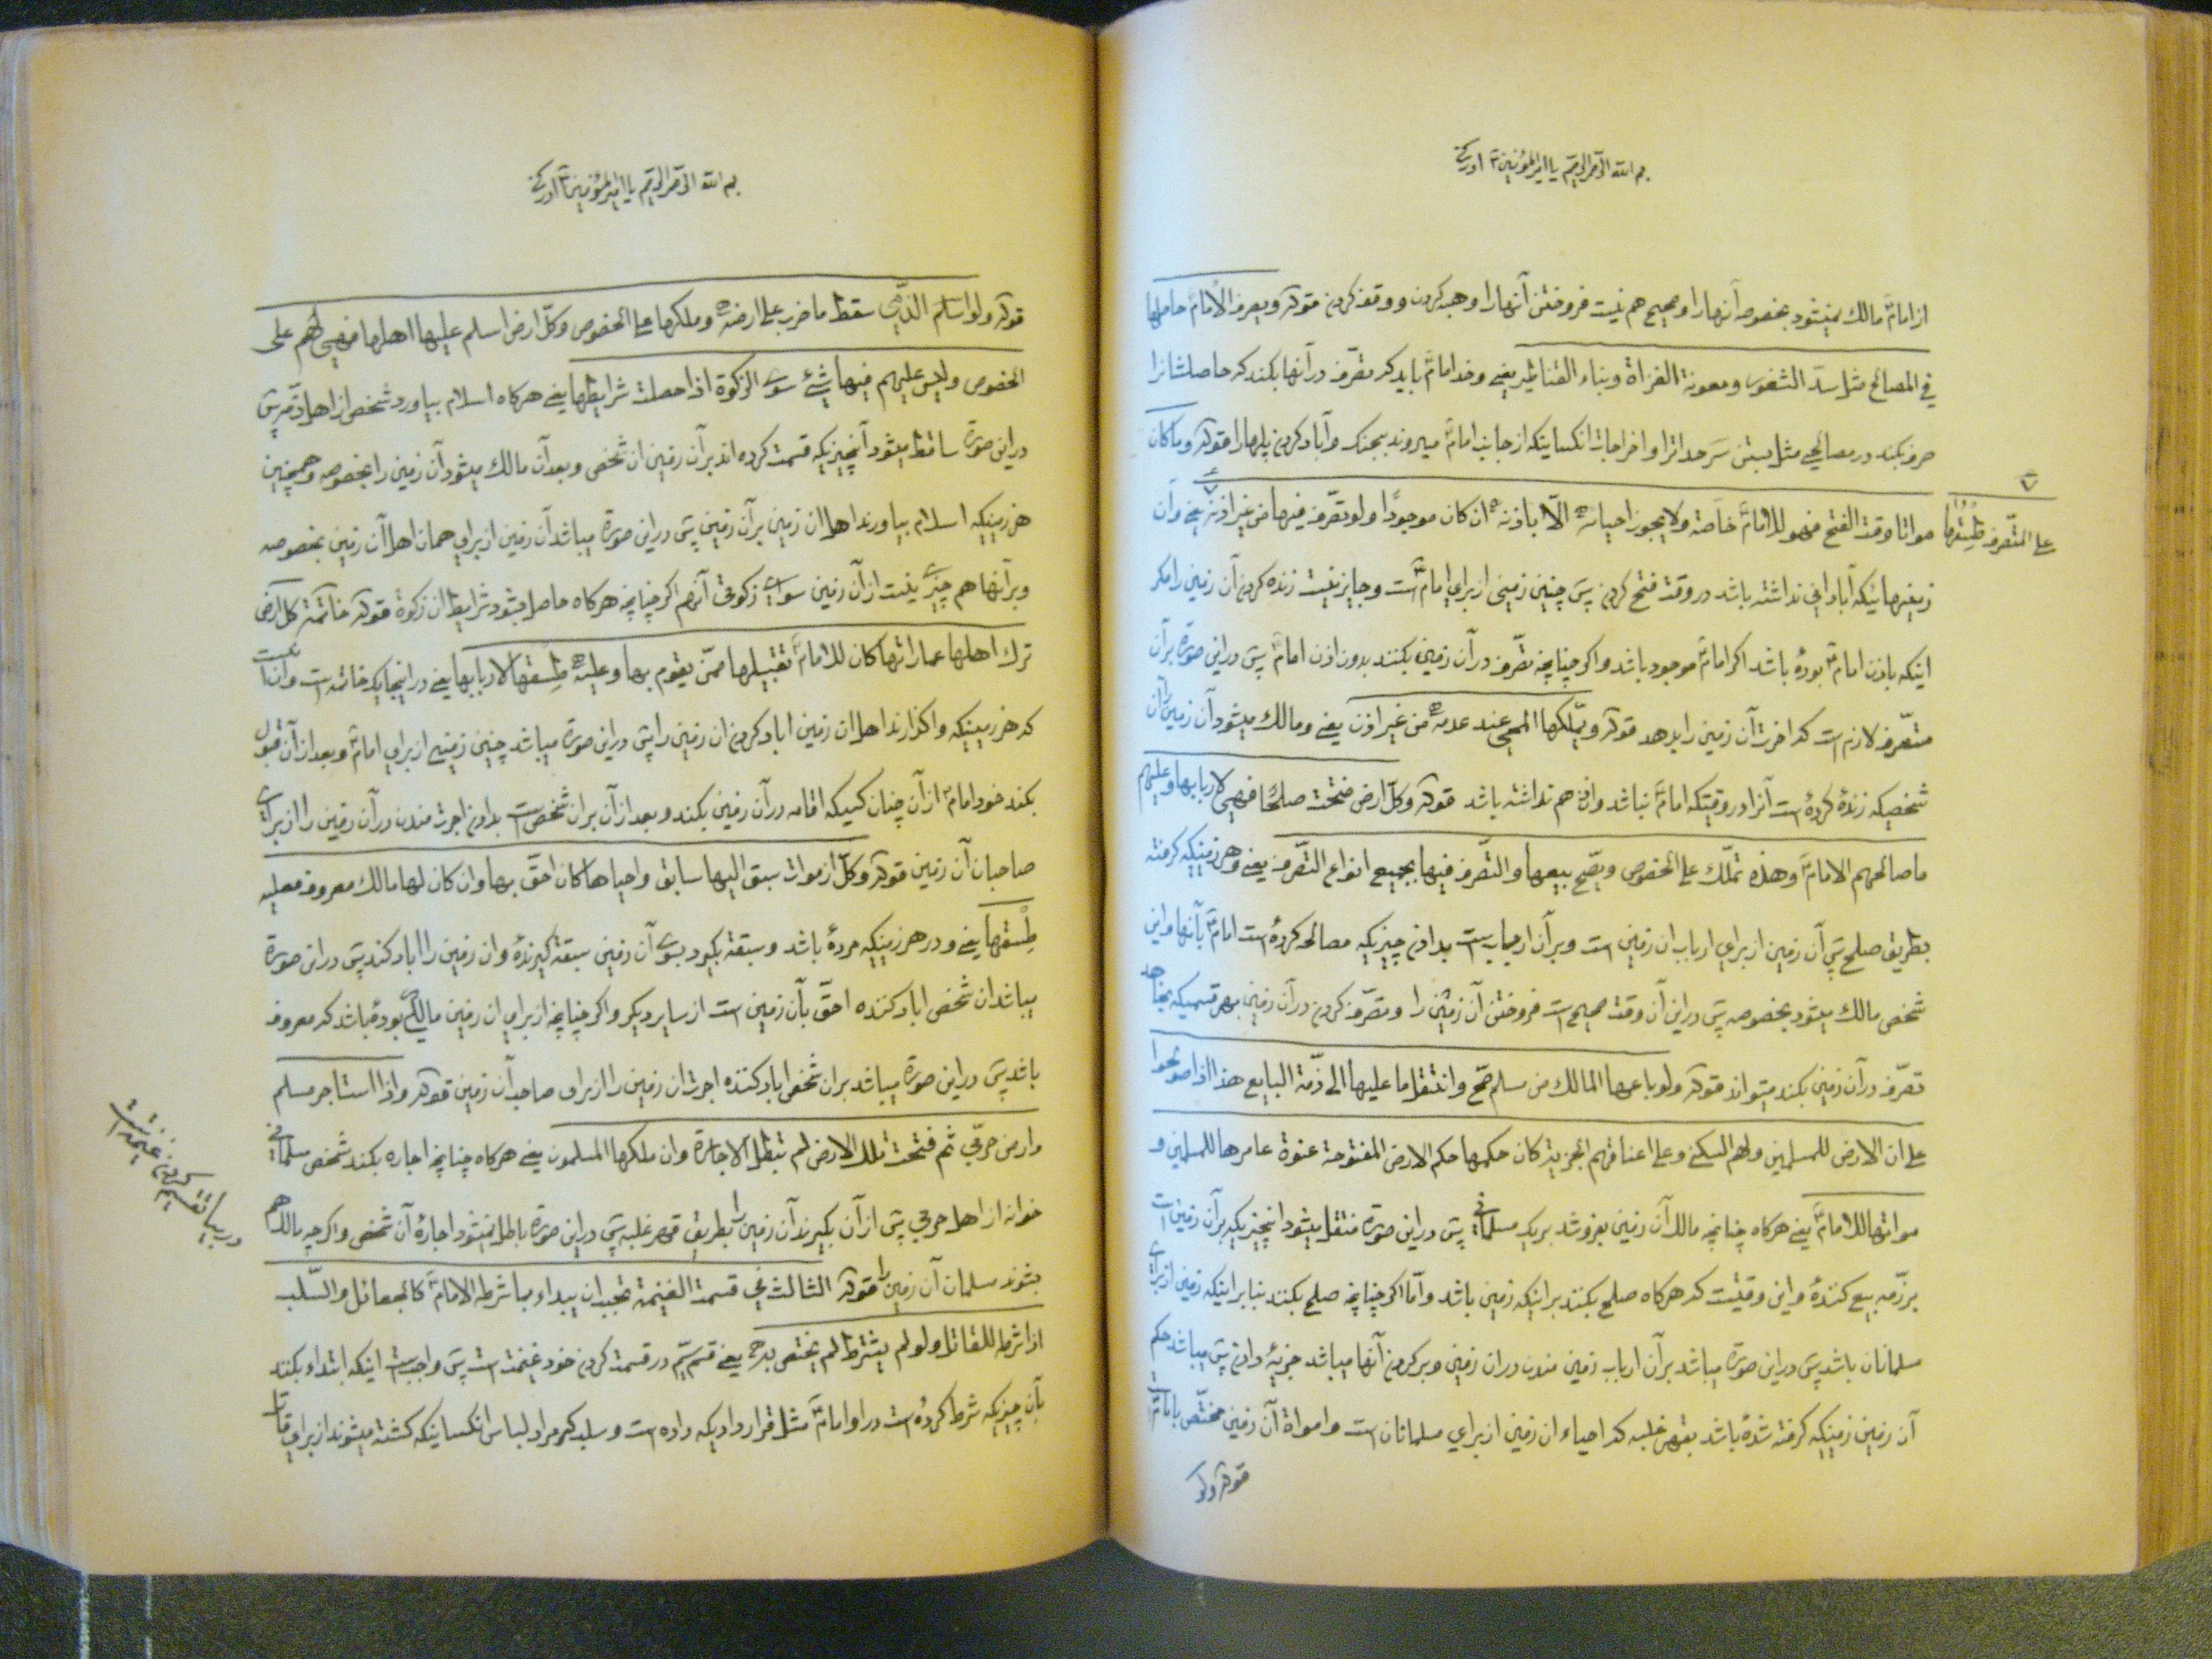 بسم الله الرحمن الرحیم یا امیرالمؤمنین ادرکنی
از امام مالک نمیشود بخصوصه آنها را و صحیح هم نیست فروختن آنها را و هبه کردن و وقف کردن قوله و یصرف الامام حاصلها
فی المصالح مثل سدّ الثغور و معونة الغزاة و بناء القناطیر یعنی و خد امام باید که تصرّف در آنها بکند که حاصلشانرا
صرف بکند در مصالحی مثل بستن سرحداترا و اخراجات انکسانیکه از جانب امام میروند بجنک و آباد کردن پلها را قوله و ما کان
مواتا وقت الفتح فهو للامام خاصة و لا یجوز احیائه الّا باذنه ان کان موجودًا و لو تصرّف فیها من غیر اذنه یعنی و آن
علی المتصرف طسقها
زمینهائیکه آبادانی نداشته باشد در وقت فتح کردن پس چنین زمینی از برای امام است و جایز نیست زنده کردن آن زمین را مکر
اینکه باذن امام بوده باشد اکر امام موجود باشد و اکر چنانچه تصرّف در آن زمین بکنند بدون اذن امام پس در این صورة بر آن
متصرّف لازم است که اجرت آن زمین را بدهد قوله و یملکها المحیی عند عدمه من غیر اذن یعنی و مالک میشود آن زمین را آن
شخصیکه زنده کرده است آنرا در وقتیکه امام نباشد و اذن هم نداشته باشد قوله و کلّ ارض فتحت صلحًا فهی لاربابها و علیهم
ما صالحهم الامام و هذه تملّک علی الخصوص و یصّح بیعها و التصّرف فیها بجمیع انواع التصّرف یعنی و هر زمینیکه کرفته
بطریق صلح پس آن زمین از برای ارباب ان زمین است و بر آن ارباب است بدادن چیزیکه مصالحه کرده است امام بآنها و این
شخص مالک میشود بخصوصه پس در این آن وقت صحیح است فروختن آن زمین را و تصرّف کردن در آن زمین بهر قسمیکه بخاهد
تصرّف در آن زمین بکند میتواند قوله و لو باعها المالک من مسلم صّح و انتقل ما علیها الی ذمّة البایع هذا اذا صولحوا
علی ان الارض للمسلمین و لهم السکنی و علی اعناقهم الجزیة کان حکمها حکم الارض المفتوحة عنوة عامرها للمسلمین و
مواتها للامام یعنی هرکاه چنانچه مالک آن زمین بفروشد بر یک مسلمانی پس در این صورة منتقل میشود انچیزیکه بر آن زمین است
بر ذمّه بیع کننده و این وقتیست که هرکاه صلح بکنند بر اینکه زمین باشد و امّا اکر چنانچه صلح بکنند بنابر اینکه زمین از برای
مسلمانان باشد پس در این صورة میباشد بر آن ارباب زمین مندن در ان زمین و بر کردن آنها میباشد جزیۀ دادن پس میباشد حکم
آن زمین زمینیکه کرفته شده باشد بقهر غلبه که احیاء ان زمین از برای مسلمانان است و امواة آن زمین مختص بامام است
قوله ولو
بسم الله الرحمن الرحیم یا امیرالمؤمنین ادرکنی
قوله و لو اسلم الذّمی سقط ما ضرب علی ارضه و ملکها علی الخصوص و کلّ ارض اسلم علیها اهلها فهی لهم علی
الخصوص و لیس علیهم فیها شیء سوی الزکوة اذا حصلت شرایطها یعنی هرکاه اسلام بیاورد شخص از اهل ذمّه پس
در این صورة ساقط میشود آنچیزیکه قسمت کرده اند بر آن زمین ان شخص و بعد آن مالک میشود آن زمین را بخصوصه و همچنین
هر زمینیکه اسلام بیاورند اهل ان زمین بر آن زمین پس در این صورة میباشد آن زمین از برای همان اهل آن زمین بخصوصه
و بر آنها هم چیزی نیست از آن زمین سوای زکوة آنهم اکر چنانچه هرکاه حاصل بشود شرایط ان زکوة قوله خاتمة کل ارض
ترک اهلها عماراتها کان للامام تقبیلها ممّن یقوم بها و علیه طسقها لاربابها یعنی در اینجا یک خاتمه است و آن است
که هر زمینیکه واکذارند اهل ان زمین اباد کردن ان زمین را پس در این صورة میباشد چنین زمینی از برای امام و بعد از آن قبول
بکند خود امام از آن چنان کسیکه اقامه در آن زمین بکند و بعد از آن بر ان شخص است بدادن اجرت مندن در آن زمین را از برای
صاحبان آن زمین قوله و کلّ ارض موات سبق الیها سابق و احیاها کان احقّ بها و ان کان لها مالک معروف فعلیه
طسقها یعنی و در هر زمینیکه مرده باشد و سبقت بکیرد بسوی آن زمین سبقة کیرنده و ان زمین را اباد کند پس در این صورة
میباشد ان شخص اباد کننده احقّ بآن زمین است از سایر دیکر و اکر چنانچه از برای ان زمین مالکی بوده باشد که معروف
باشد پس در این صورة میباشد بر ان شخص اباد کننده اجرت ان زمین را از برای صاحب آن زمین قوله و اذا استاجر مسلم
دار من حربی ثم فتحت تلک الارض لم تبطل الاجارة و ان ملکها المسلمون یعنی هرکاه چنانچه اجاره بکند شخص مسلمانی
خوانه از اهل حربی پس از آن بکیرند آن زمین را بطریق قهر غلبه پس در این صورة باطل نمیشود اجارۀ آن شخص و اکرچه مالک هم
بشوند مسلمان آن زمین را قوله الثالث فی قسمت الغنیمة تجب ان یبداء بما شرطه الامام کالجعائل و السّلب
اذا شرط للقاتل و لو لم یشترط لم یختص به یعنی قسم سیّم در قسمت کردن خود غنیمت است پس واجب است اینکه ابتداء بکند
بآن چیزیکه شرط کرده است در او امام مثل قرار دادیکه داده است و سلب که مراد لباس انکسانیکه کشته میشوند از برای قاتل
در بیان تقسیم کردن غنیمت است